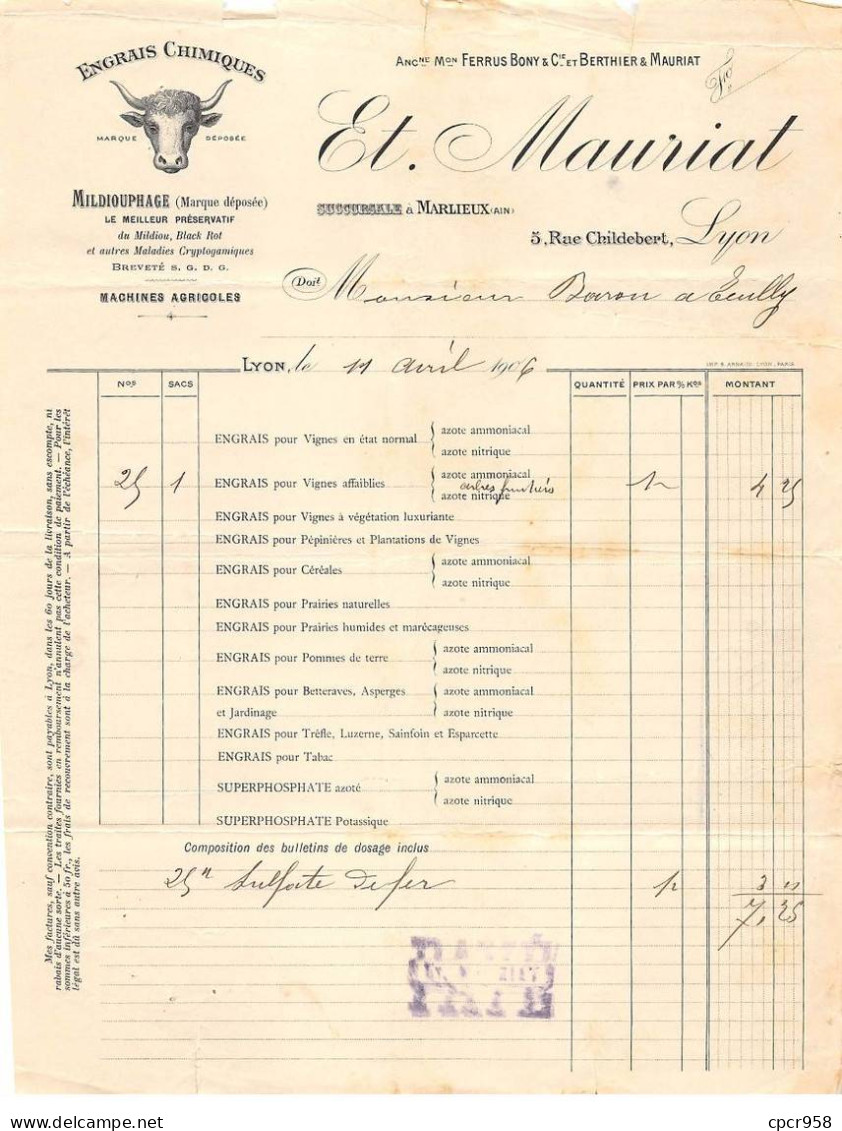 ENGRAIS CHIMIQUES
MARQUE DÉPOSÉE
MILDIOUPHAGE (Marque déposée)
LE MEILLEUR PRÉSERVATIF
du Mildiou, Black Rot
et autres Maladies Cryptogamiques
BREVETÉ S. G. D. G.
MACHINES AGRICOLES
ANCNE MON FERRUS BONY & CIE ET BERTHIER & MAURIAT
Et. Mauriat
SUCCURSALE à MARLIEUX (AIN)
5, Rue Childebert, Lyon
Doit Monsieur Baron a Ecully
LYON, le 11 avril 1906
Nos SACS QUANTITÉ PRIX PAR % Kos MONTANT
ENGRAIS pour Vignes en état normal azote ammoniacal
azote nitrique
25 1 ENGRAIS pour Vignes affaiblies azote ammoniacal 4 25
arbres fruitiers
azote nitrique
ENGRAIS pour Vignes à végétation luxuriante
ENGRAIS pour Pépinières et Plantations de Vignes
ENGRAIS pour Céréales azote ammoniacal
azote nitrique
ENGRAIS pour Prairies naturelles
ENGRAIS pour Prairies humides et marécageuses
ENGRAIS pour Pommes de terre azote ammoniacal
azote nitrique
ENGRAIS pour Betteraves, Asperges azote ammoniacal
et Jardinage azote nitrique
ENGRAIS pour Trèfle, Luzerne, Sainfoin et Esparcette
ENGRAIS pour Tabac
SUPERPHOSPHATE azoté azote ammoniacal
azote nitrique
SUPERPHOSPHATE Potassique
Composition des bulletins de dosage inclus
25 k Sulfate de fer 3 "
7,25
Mes factures, sauf convention contraire, sont payables à Lyon, dans les 60 jours de la livraison, sans escompte, ni
rabais d'aucune sorte. — Les traites fournies en remboursement n'annulent pas cette condition de paiement. — Pour les
sommes inférieures à 50 fr., les frais de recouvrement sont à la charge de l'acheteur. — A partir de l'échéance, l'intérêt
légal est dû sans autre avis.
cpcr958